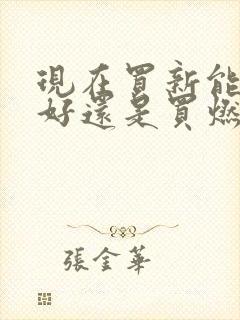 現在買新能
好還是買燃
張金華